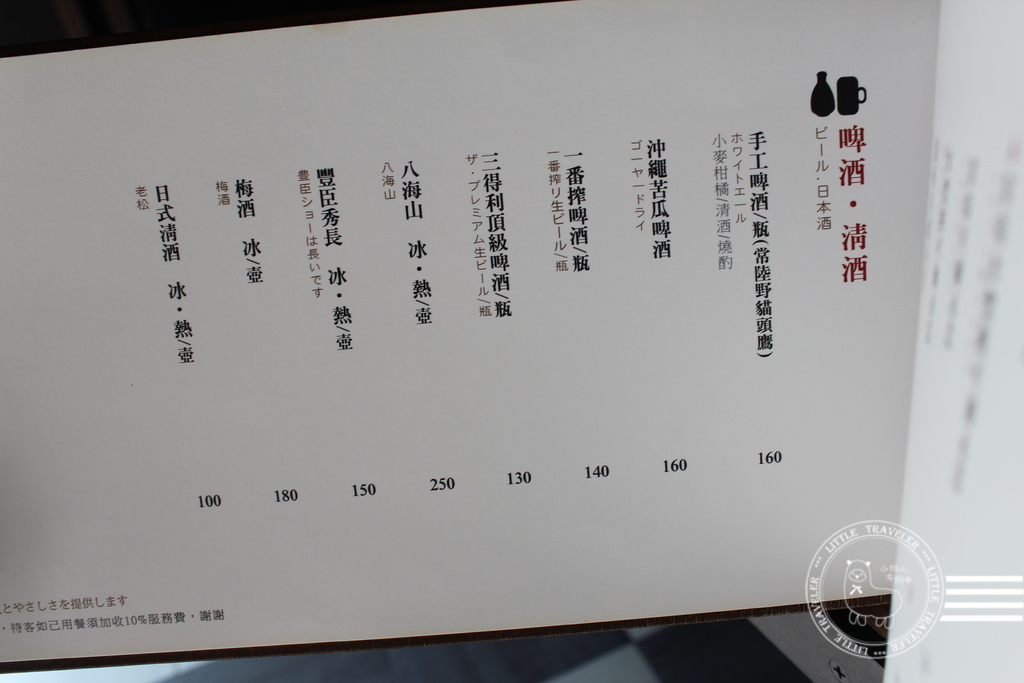 啤酒・清酒
ビール・日本酒
手工啤酒/瓶(常陸野貓頭鷹)
ホワイトエール
小麥柑橘/清酒/燒酌
160
沖繩苦瓜啤酒
ゴーヤードライ
160
一番搾啤酒/瓶
一番搾り生ビール/瓶
140
三得利頂級啤酒/瓶
ザ・プレミアム生ビール/瓶
130
八海山 冰・熱/壺
八海山
250
豐臣秀長 冰・熱/壺
豊臣ショーは長いです
150
梅酒 冰/壺
梅酒
180
日式清酒 冰・熱/壺
老松
100
とやさしさを提供します
，待客如己用餐須加收10%服務費，謝謝
LITTLE TRAVELER
LITTLE TRAVELER
LITTLE TRAVELER